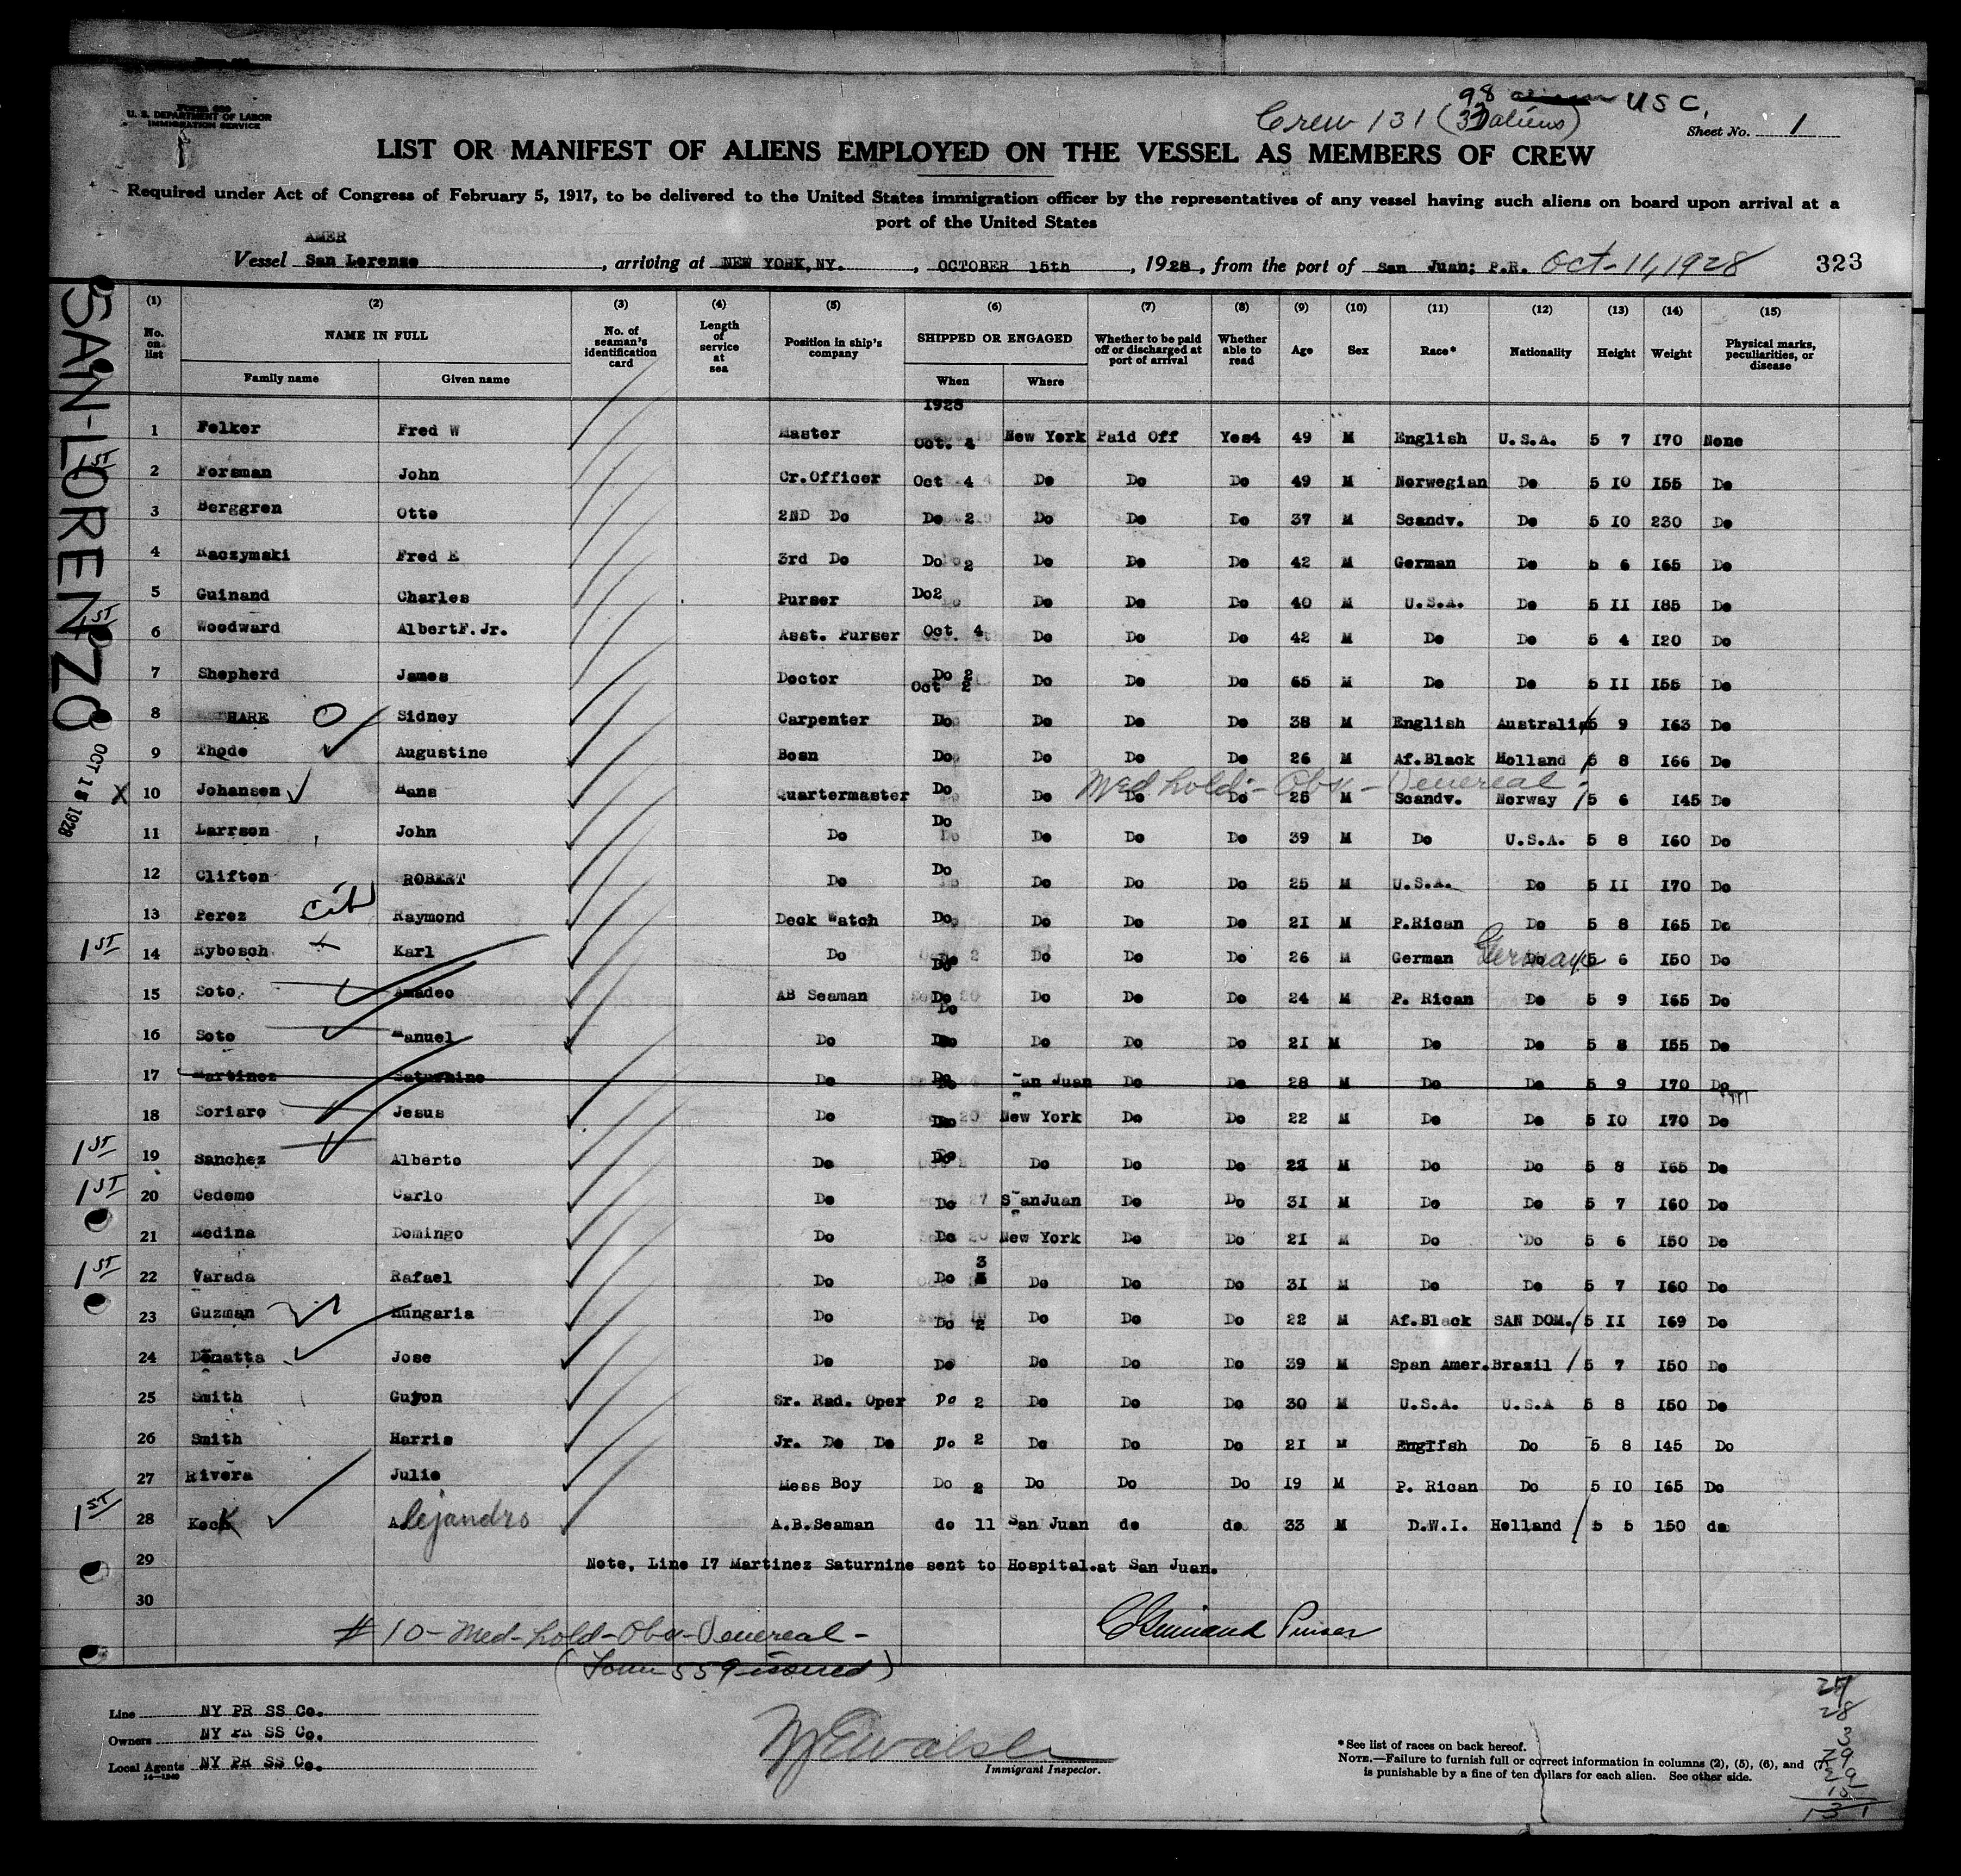 Form 689
U. S. DEPARTMENT OF LABOR
IMMIGRATION SERVICE
98 aliens USC,
Crew 131 (33 aliens)
Sheet No. 1
LIST OR MANIFEST OF ALIENS EMPLOYED ON THE VESSEL AS MEMBERS OF CREW
Required under Act of Congress of February 5, 1917, to be delivered to the United States immigration officer by the representatives of any vessel having such aliens on board upon arrival at a
port of the United States
AMER
Vessel San Lorenzo, arriving at NEW YORK,NY., OCTOBER 15th, 1928, from the port of San Juan; P.R. Oct-11,1928 323
SAN-LORENZO
OCT 15 1928
(1) (2) (3) (4) (5) (6) (7) (8) (9) (10) (11) (12) (13) (14) (15)
No. on list NAME IN FULL Family name Given name No. of seaman's identification card Length of service at sea Position in ship's company SHIPPED OR ENGAGED When Where Whether to be paid off or discharged at port of arrival Whether able to read Age Sex Race* Nationality Height Weight Physical marks, peculiarities, or disease
1928
1 Felker Fred W Master Oct. 4 New York Paid Off Yes4 49 M English U.S.A. 5 7 170 None
1ST 2 Forsman John Cr.Officer Oct 4 Do Do Do 49 M Norwegian Do 5 10 155 Do
3 Berggren Otto 2ND Do Do 2 Do Do Do 37 M Scandv. Do 5 10 230 Do
4 Kaczymski Fred E 3rd Do Do 2 Do Do Do 42 M German Do 5 6 165 Do
5 Guinand Charles Purser Do2 Do Do Do 40 M U.S.A. Do 5 11 185 Do
1ST 6 Woodward AlbertF.Jr. Asst. Purser Oct 4 Do Do Do 42 M Do Do 5 4 120 Do
7 Shepherd James Doctor Do 2 Oct 2 Do Do Do 65 M Do Do 5 11 155 Do
8 HARE Sidney Carpenter Do Do Do Do 38 M English Australia 5 9 163 Do
9 Thode Augustine Bosn Do Do Do Do 26 M Af.Black Holland 5 8 166 Do
Med hold - Obs - Venereal -
X 10 Johansen Hans Quartermaster Do Do Do Do 25 M Scandv. Norway 5 6 145 Do
11 Larrson John Do Do Do Do Do 39 M Do U.S.A. 5 8 160 Do
12 Clifton ROBERT Do Do Do Do Do 25 M U.S.A. Do 5 11 170 Do
13 Perez Cit Raymond Deck Watch Do Do Do Do 21 M P.Rican Do 5 8 165 Do
1ST 14 Rybosch Karl Do Do Do Do Do 26 M German Do Germany 5 6 150 Do
15 Soto Amadeo AB Seaman Do Do Do Do 24 M P. Rican Do 5 9 165 Do
16 Soto Manuel Do Do Do Do Do 21 M Do Do 5 8 155 Do
17 Martinez Saturnine Do Do San Juan Do Do 28 M Do Do 5 9 170 Do
18 Soriaro Jesus Do Do New York Do Do 22 M Do Do 5 10 170 Do
1ST 19 Sanchez Alberto Do Do Do Do Do 22 M Do Do 5 8 165 Do
1ST 20 Cedeme Carlo Do Do SanJuan Do Do 31 M Do Do 5 7 160 Do
21 Medina Domingo Do Do New York Do Do 21 M Do Do 5 6 150 Do
1ST 22 Varada Rafael Do Do 3 Do Do Do 31 M Do Do 5 7 160 Do
23 Guzman Hungaria Do Do 2 Do Do Do 22 M Af.Black SAN DOM. 5 11 169 Do
24 Dematta Jose Do Do Do Do Do 39 M Span Amer. Brazil 5 7 150 Do
25 Smith Guyon Sr. Rad. Oper Do 2 Do Do Do 30 M U.S.A. U.S.A 5 8 150 Do
26 Smith Harris Jr. Do Do Do 2 Do Do Do 21 M English Do 5 8 145 Do
27 Rivera Julio Mess Boy Do 2 Do Do Do 19 M P. Rican Do 5 10 165 Do
1ST 28 Kock Alejandro A.B.Seaman do 11 San Juan do do 33 M D.W.I. Holland 5 5 150 do
29 Note, Line 17 Martinez Saturnine sent to Hospital.at San Juan.
30
# 10 - Med - hold - Obs - Venereal -
CGuinand Purser
(Form 559 issued)
Line NY PR SS Co.
Owners NY PR SS Co.
Local Agents NY PR SS Co.
14-1240
Immigrant Inspector.
*See list of races on back hereof.
NOTE.—Failure to furnish full or correct information in columns (2), (5), (6), and (7)
is punishable by a fine of ten dollars for each alien. See other side.
28
3
29
131